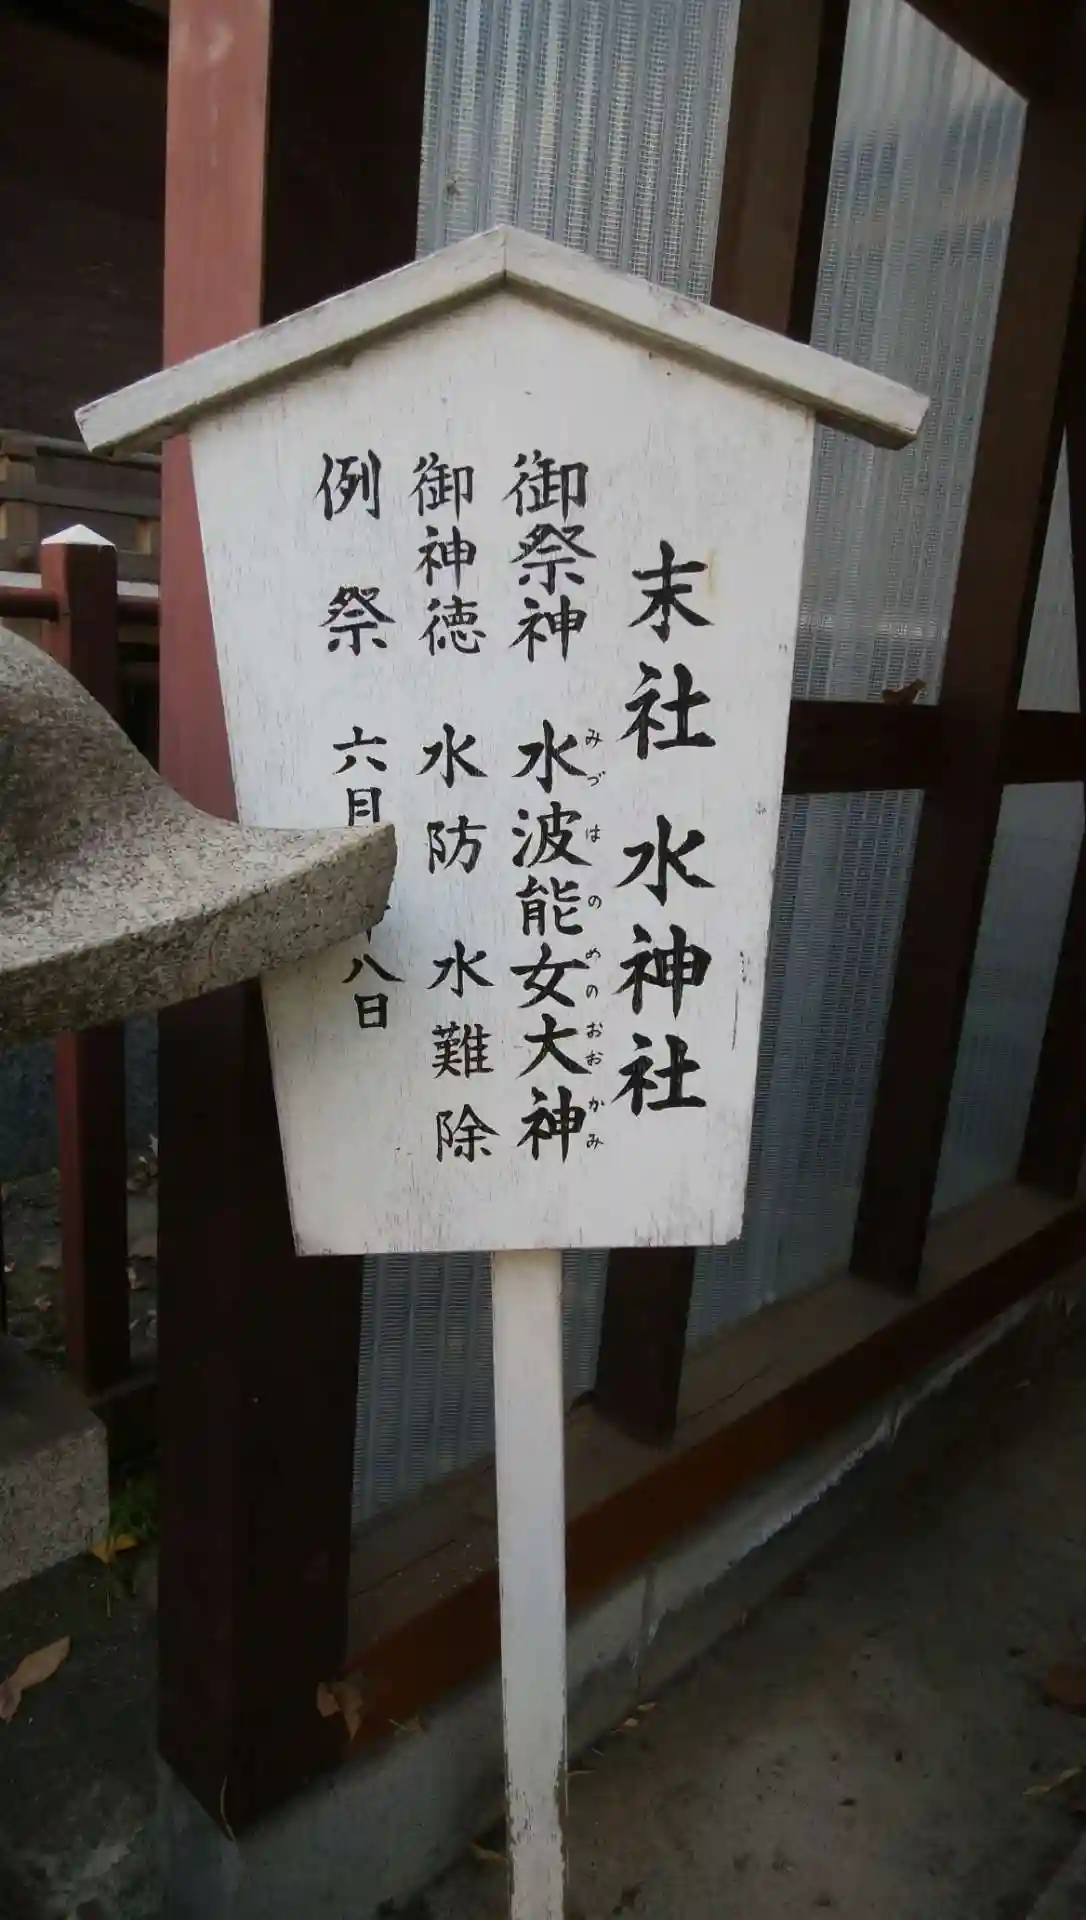 末社 水神社
御祭神 水波能女大神
みづはのめのおおかみ
御神徳 水防 水難除
例祭 六月 八日